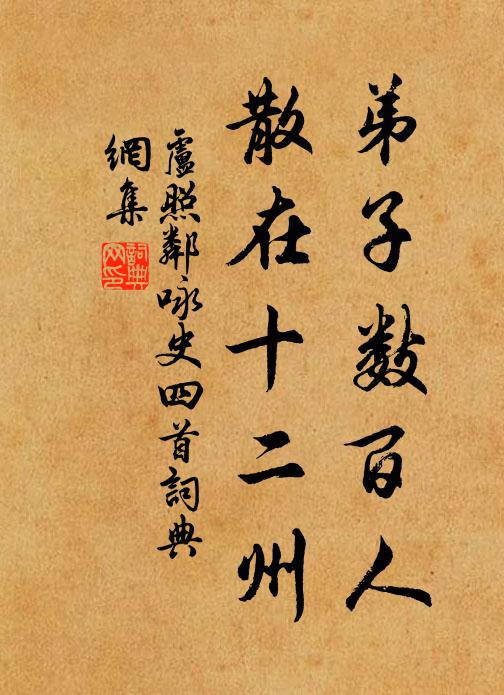 弟子数百人
散在十二州
盧照鄰咏史四首詞典
網集
詞典
网印